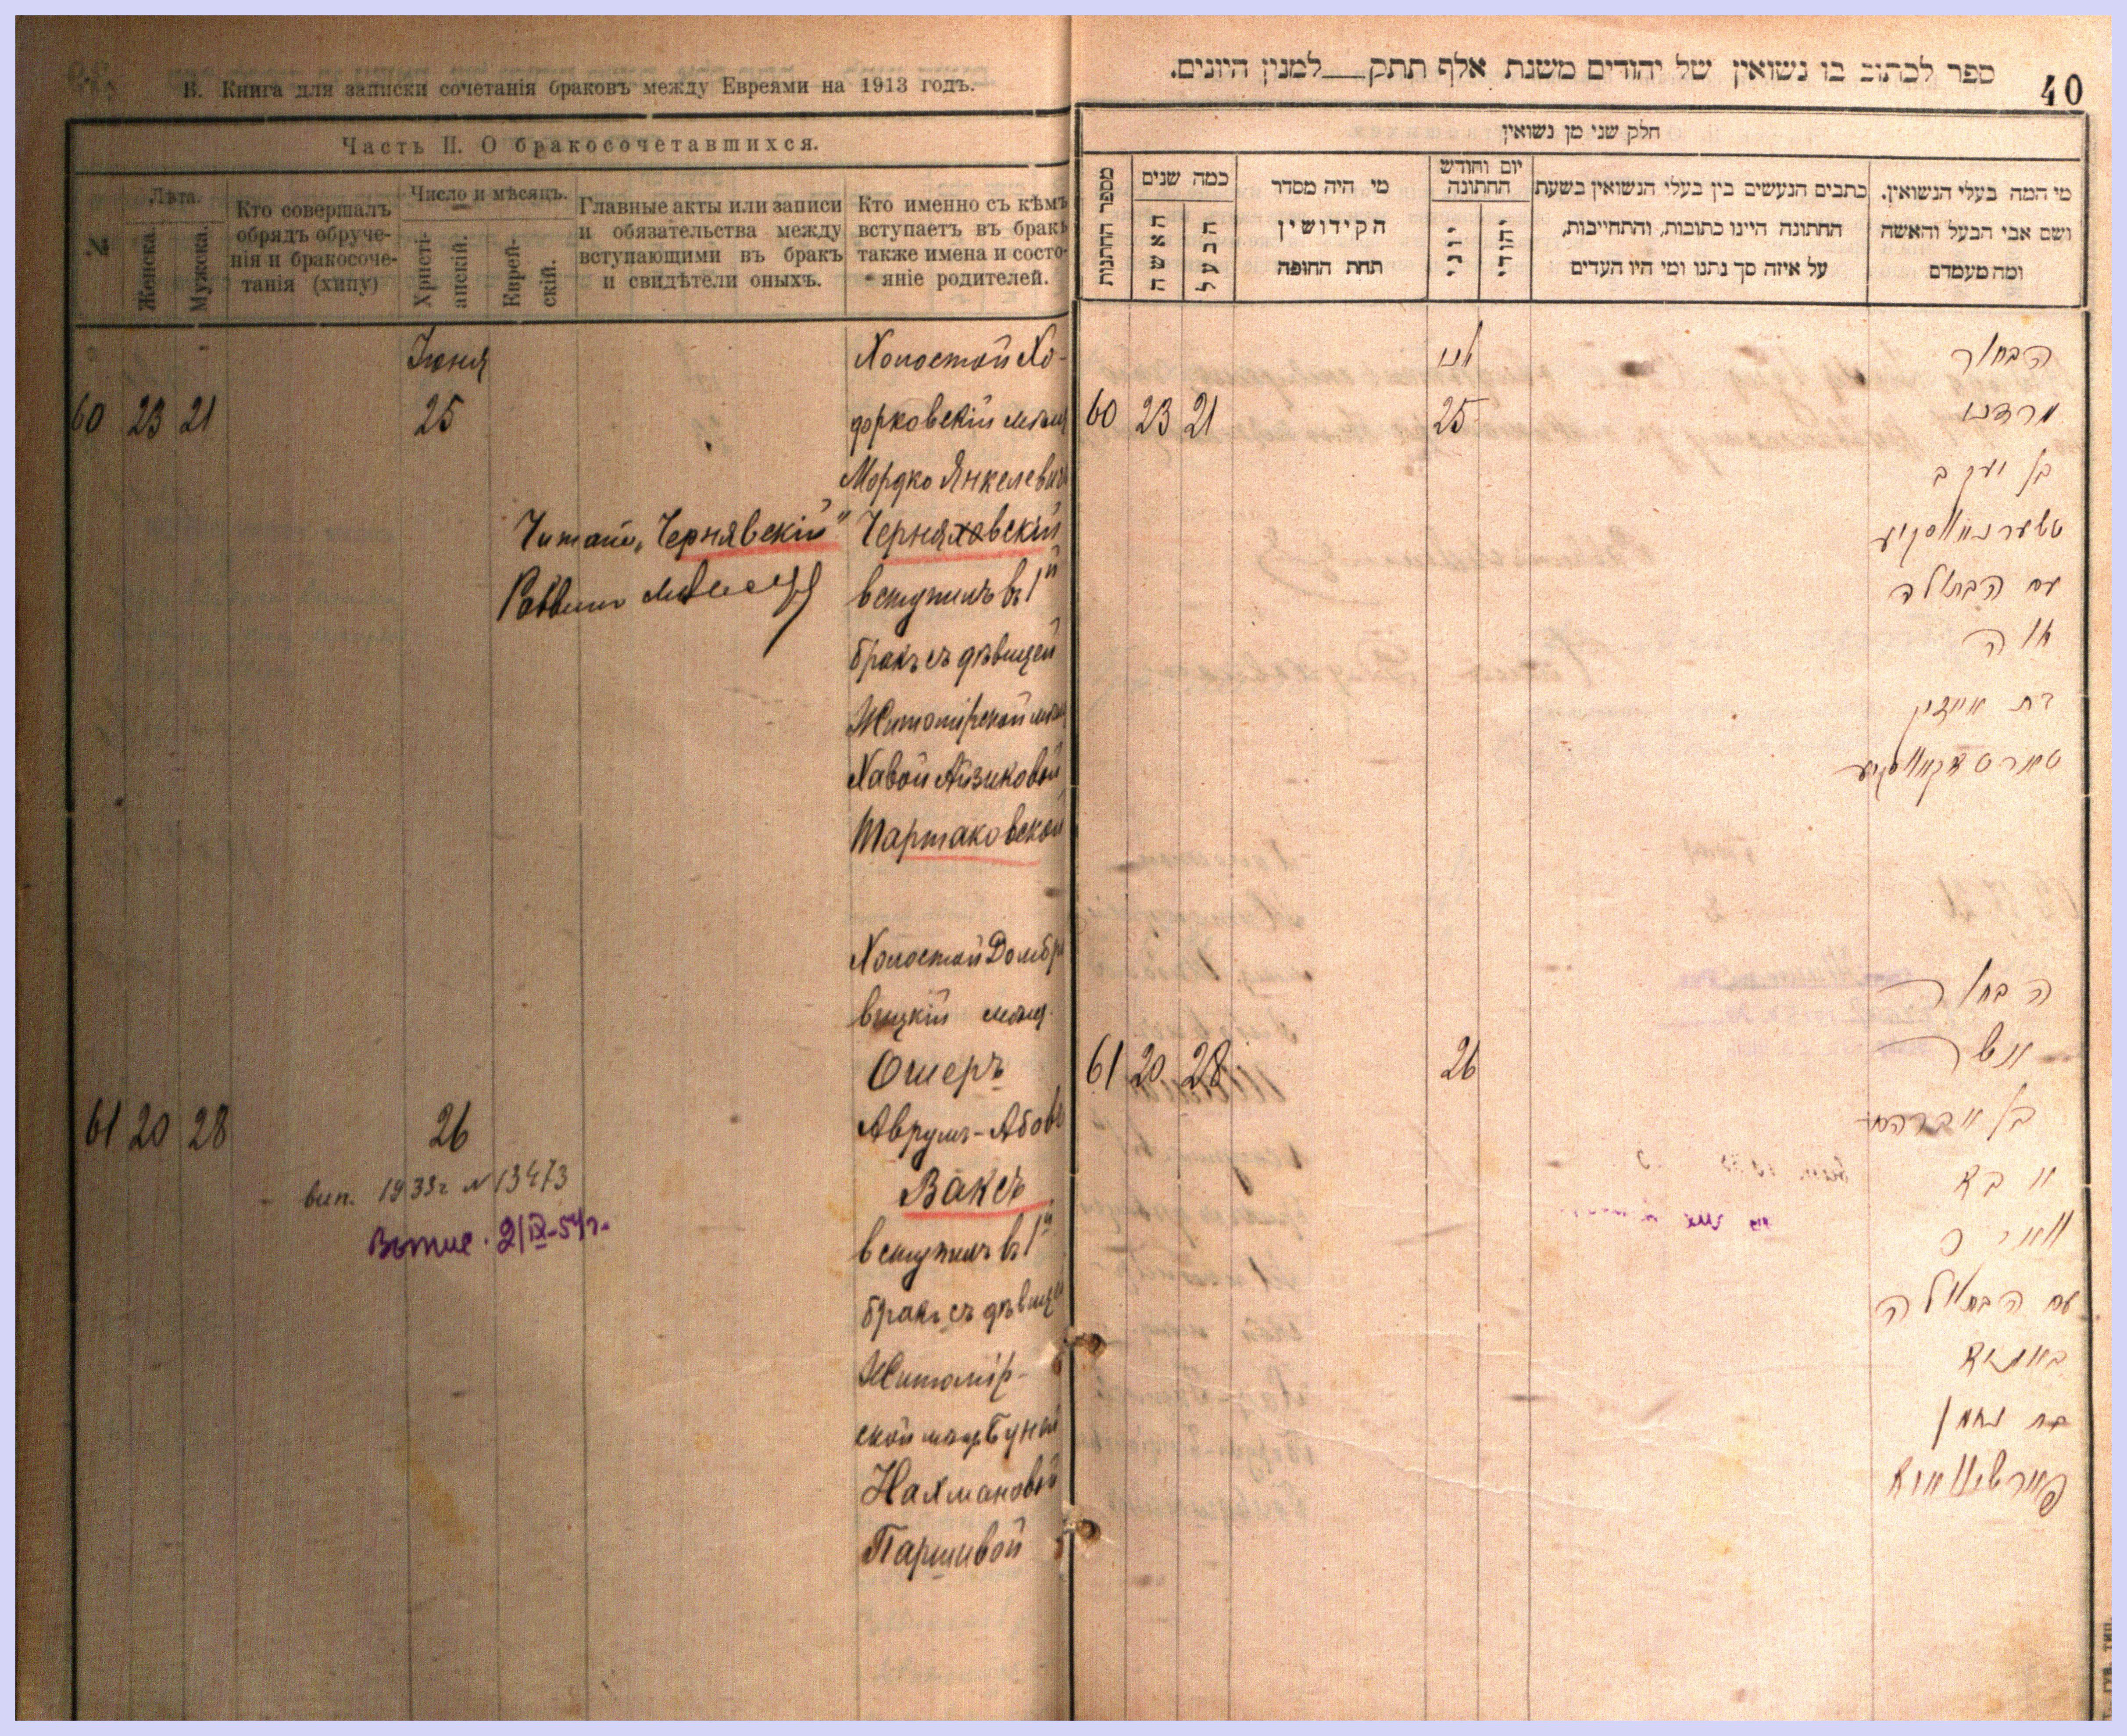 В. Книга для записки сочетанія браковъ между Евреями на 1913 годъ.
Часть II. О бракосочетавшихся.
№
Лѣта.
Женска.
Мужска.
Кто совершалъ
обрядъ обруче-
нія и бракосоче-
танія (хипу)
Число и мѣсяцъ.
Христі-
анскій.
Еврей-
скій.
Главные акты или записи
и обязательства между
вступающими въ бракъ
и свидѣтели оныхъ.
Кто именно съ кѣмъ
вступаетъ въ бракъ
также имена и состо-
яніе родителей.
Іюня
Холостой Хо-
60 23 21 25 дорковскій мѣщ
Мордко Янкелевъ
Читать „Чернявскій" Черняховскій
Раввинъ
вступилъ въ 1й
бракъ съ дѣвицей
Житомірской мѣщ
Хавой Айзиковой
Тартаковской
Холостой Домбр
вицкій мѣщ.
Ошеръ
61 20 28 26 Аврумъ-Абовъ
вип. 1933г N 13473
Ваксъ
Вытис. 2/IX-54г.
вступилъ въ 1й
бракъ съ дѣвицей
Житомір-
ской мѣщ Буней
Нахмановой
Паршивой
ספר לכתוב בו נשואין של יהודים משנת אלף תתק למנין היונים.
40
חלק שני מן נשואין
מספר החתנות
כמה שנים
האשה
הבעל
מי היה מסדר
הקידושין
תחת החופה
יום וחודש
החתונה
יוני
יהודי
כתבים הנעשים בין בעלי הנשואין בשעת
החתונה היינו כתובות, והתחייבות,
על איזה סך נתנו ומי היו העדים
מי המה בעלי הנשואין.
ושם אבי הבעל והאשה
ומה מעמדם
הבחור
60 23 21 25 מרדכו
בן יעקב
טשערניאווסקיע
עם הבתולה
חוה
בת אייזיק
טארטאקאווסקיע
הבחור
61 20 28 26 אשר
בן אברהם
אבא
וואקס
עם הבתולה
בת נחמן